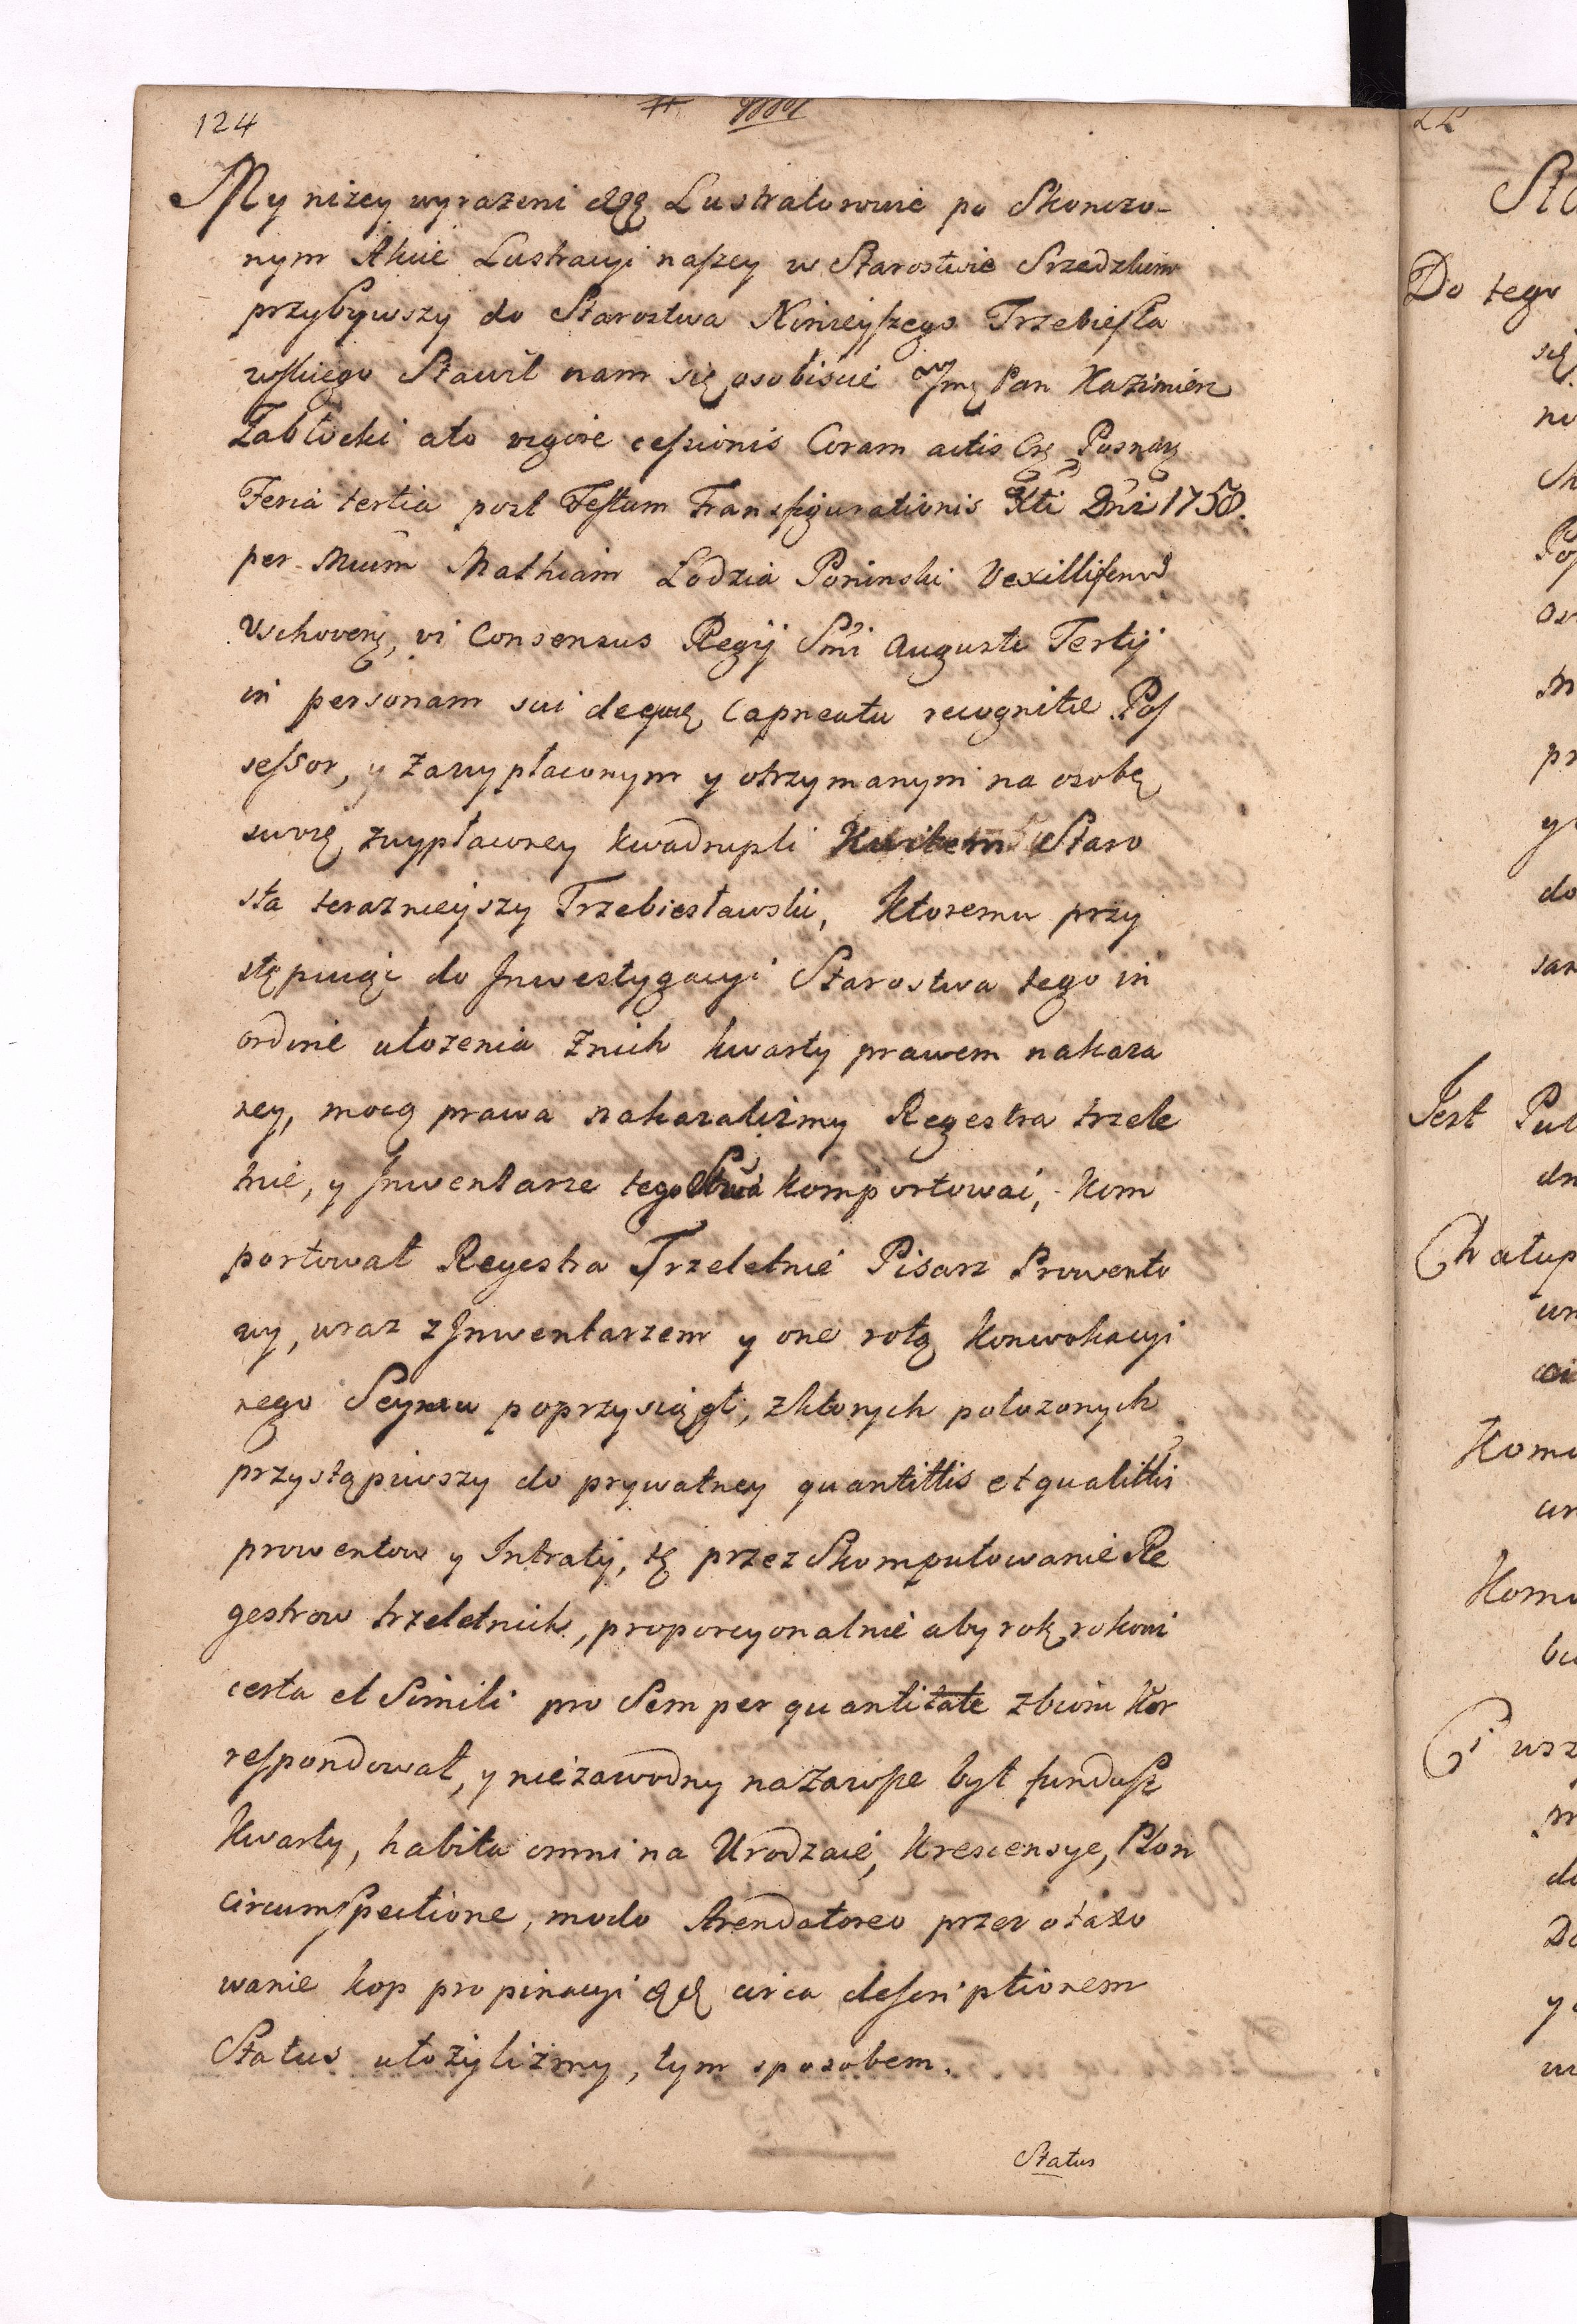 124
My niżey wyrażeni Lustratorowie po Skonczo-
nym Akcie Lustracyi naszey w Starostwie Srzedzkim
przybywszy do Starostwa Ninieyszego Trzebiesła
wskiego Stawił nam się osobiscie Jmę Pan Kazimierz
Zabłocki ato vigore cessionis Coram actis Posnan
Feria tertia post Festum Transfigurationis Xti Dni 1758.
per Mathiam Łodzia Poninski Vexilliferum
Vschoven, vi Consensus Regij Smi Augusti Tertij
in personam sui deque Capneatu recognitae Pos
sessor, y zawypłaconym y otrzymanym na osobę
swoię zwypłaconey kwadrupli Kwitem Staro
sta terazneyszy Trzebiesławski, Ktoremu przy
stępuiąc do Jnwestygacyi Starostwa tego in
ordine ułożenia Znich kwarty prawem nakaza
ney, mocą prawa nakazalizmy Regestra trzele
tnie, y Jnwentarze tego Stwa komportowac, kom
portował Regestra Trzeletnie Pisarz Prowento
wy, wraz z Jnwentarzem y one rotą Konwokacyi
nego Seymu poprzysiągł, zktorych położonych
przystąpiwszy do prywatney quantittis et qualittis
prowentow y Intraty, tę przez Skomputowanie Re
gestrow trzeletnich, proporcyonalnie aby rok rokowi
certa et Simili pro Semper quantitate zbioru kor
respondował, y niezawodny na Zawsze był fundusz
Kwarty, habita omni na Urodzaie, Krescensye, Plon
circumspectione, modo Arendatoreo przez otaxo
wanie kop propinacyi circa descriptionem
Status ułożylizmy, tym sposobem.
Status
Do tego
się
Jest